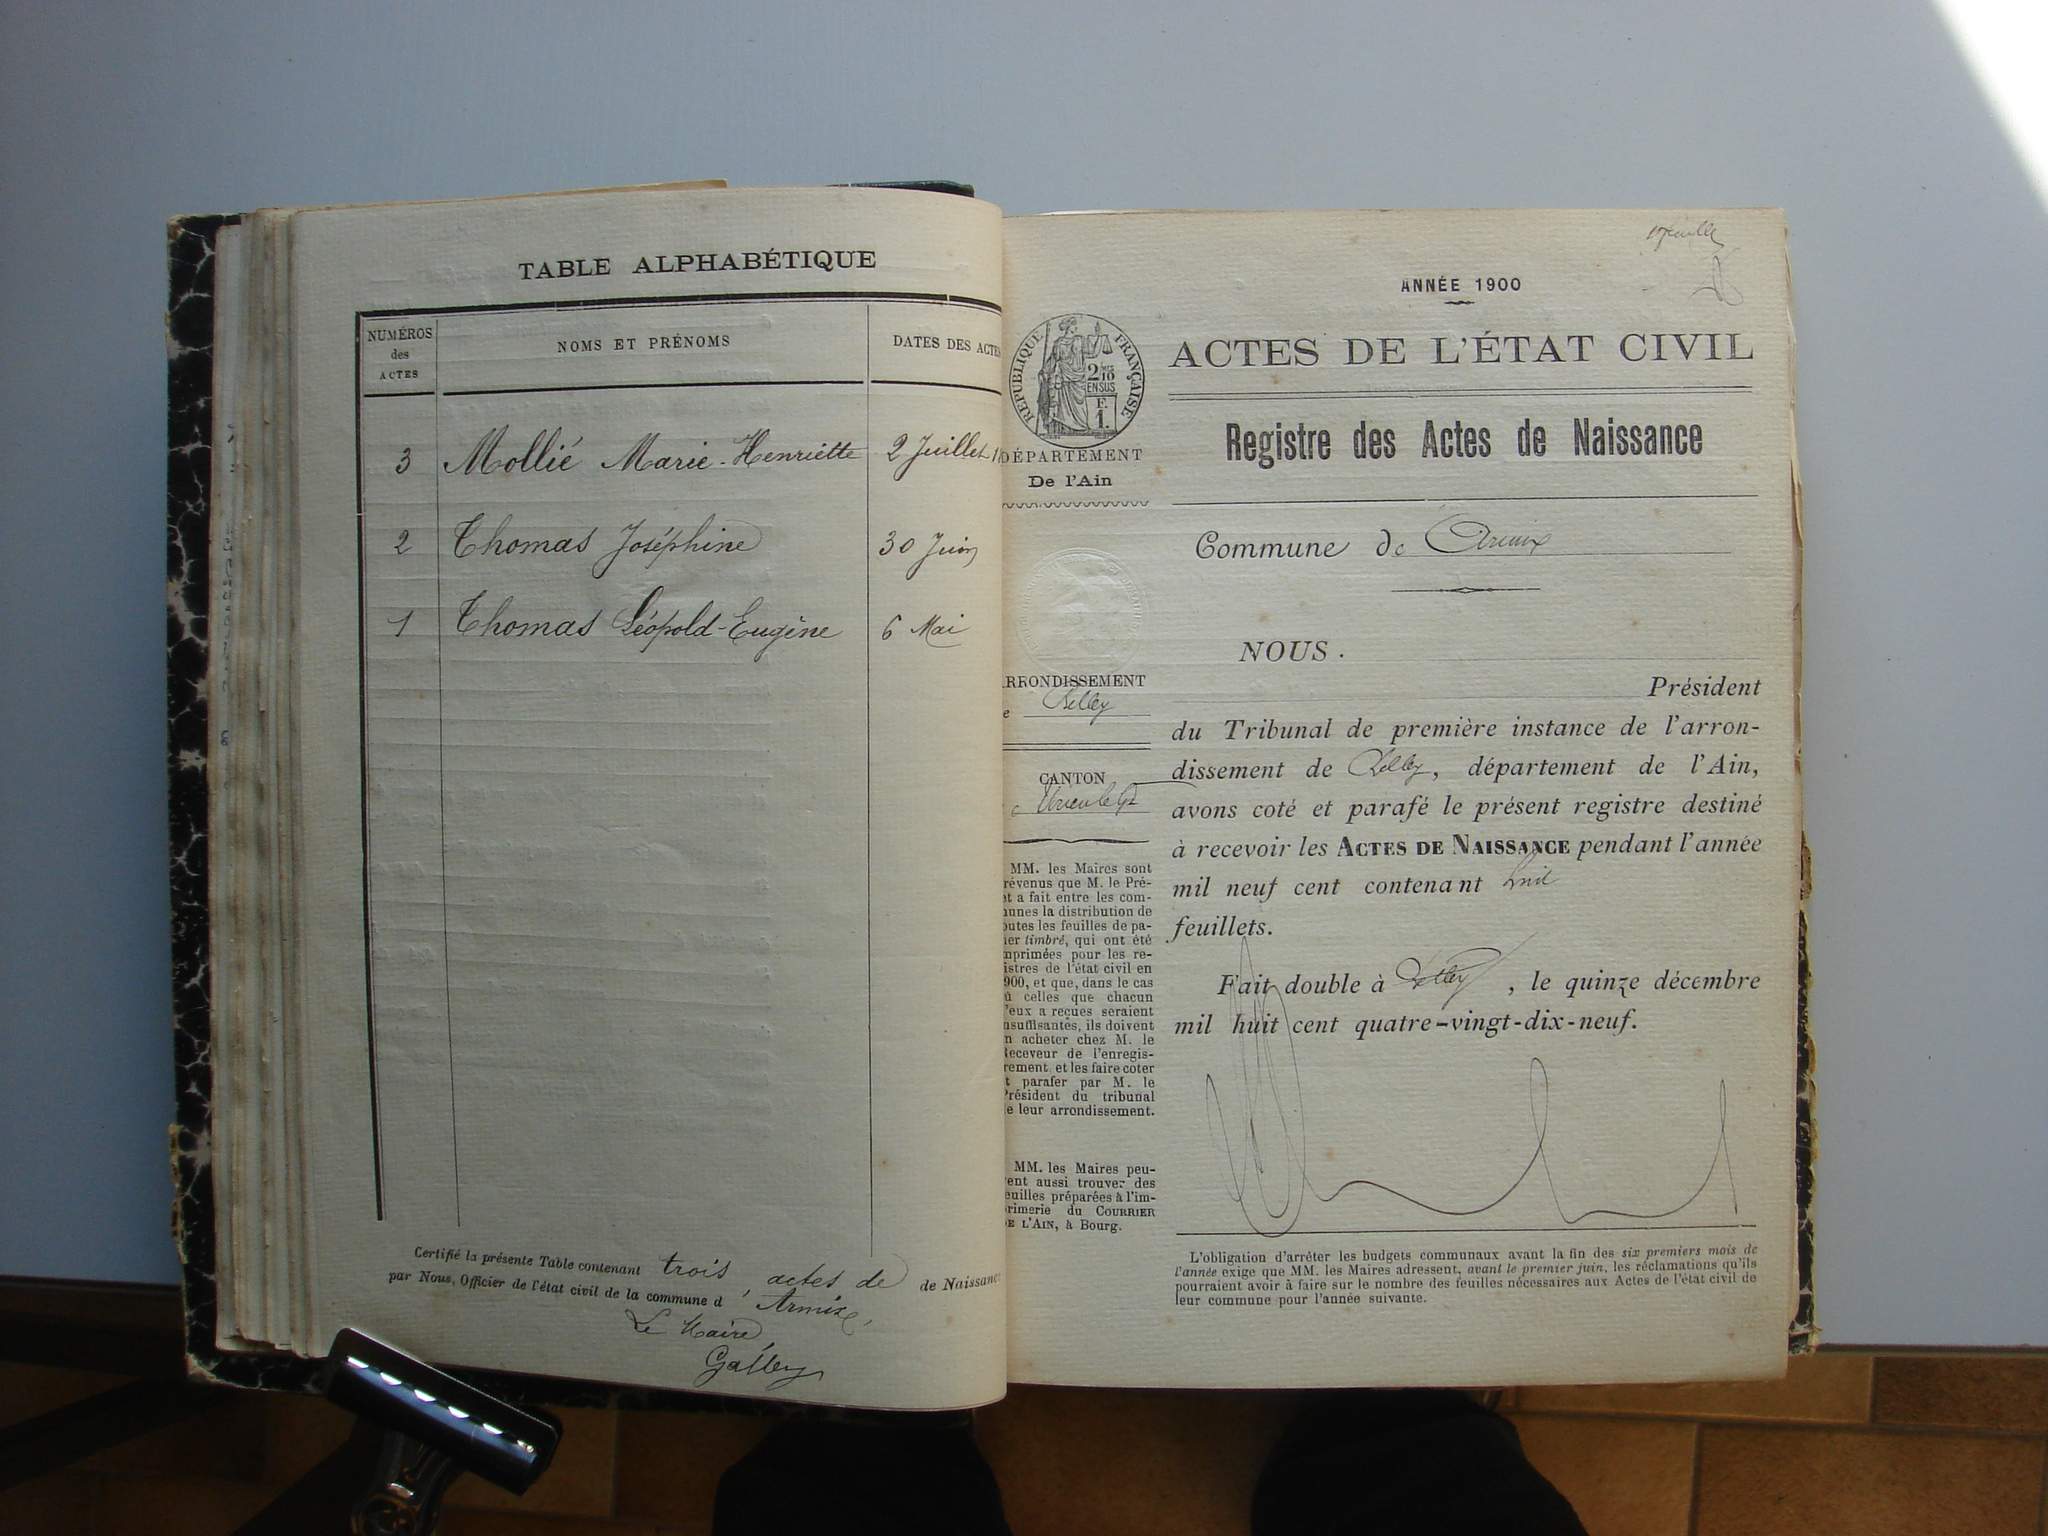 TABLE ALPHABÉTIQUE
NUMÉROS
des
ACTES
NOMS ET PRÉNOMS
DATES DES ACTES
3 Mollié Marie-Henriette 2 Juillet
2 Thomas Joséphine 30 Juin
1 Thomas Léopold-Eugène 6 Mai
Certifié la présente Table contenant trois actes de de Naissance
par Nous, Officier de l'état civil de la commune d'Armix,
Le Maire
1er feuillet
ANNÉE 1900
RÉPUBLIQUE FRANÇAISE
2/10
EN SUS
F.
1.
ACTES DE L'ÉTAT CIVIL
Registre des Actes de Naissance
DÉPARTEMENT
De l'Ain
Commune de Armix
NOUS.
ARRONDISSEMENT
Belley
CANTON
Virieu le Gd
Président
du Tribunal de première instance de l'arron-
dissement de Belley, département de l'Ain,
avons coté et parafé le présent registre destiné
à recevoir les ACTES DE NAISSANCE pendant l'année
mil neuf cent contenant huit
feuillets.
Fait double à Belley, le quinze décembre
mil huit cent quatre-vingt-dix-neuf.
MM. les Maires sont
révenus que M. le Pré-
et a fait entre les com-
munes la distribution de
outes les feuilles de pa-
ier timbré, qui ont été
mprimées pour les re-
istres de l'état civil en
900, et que, dans le cas
ù celles que chacun
'eux a reçues seraient
nsuffisantes, ils doivent
n acheter chez M. le
Receveur de l'enregis-
rement et les faire coter
t parafer par M. le
Président du tribunal
e leur arrondissement.
MM. les Maires peu-
vent aussi trouver des
euilles préparées à l'im-
primerie du COURRIER
DE L'AIN, à Bourg.
L'obligation d'arrêter les budgets communaux avant la fin des six premiers mois de
l'année exige que MM. les Maires adressent, avant le premier juin, les réclamations qu'ils
pourraient avoir à faire sur le nombre des feuilles nécessaires aux Actes de l'état civil de
leur commune pour l'année suivante.